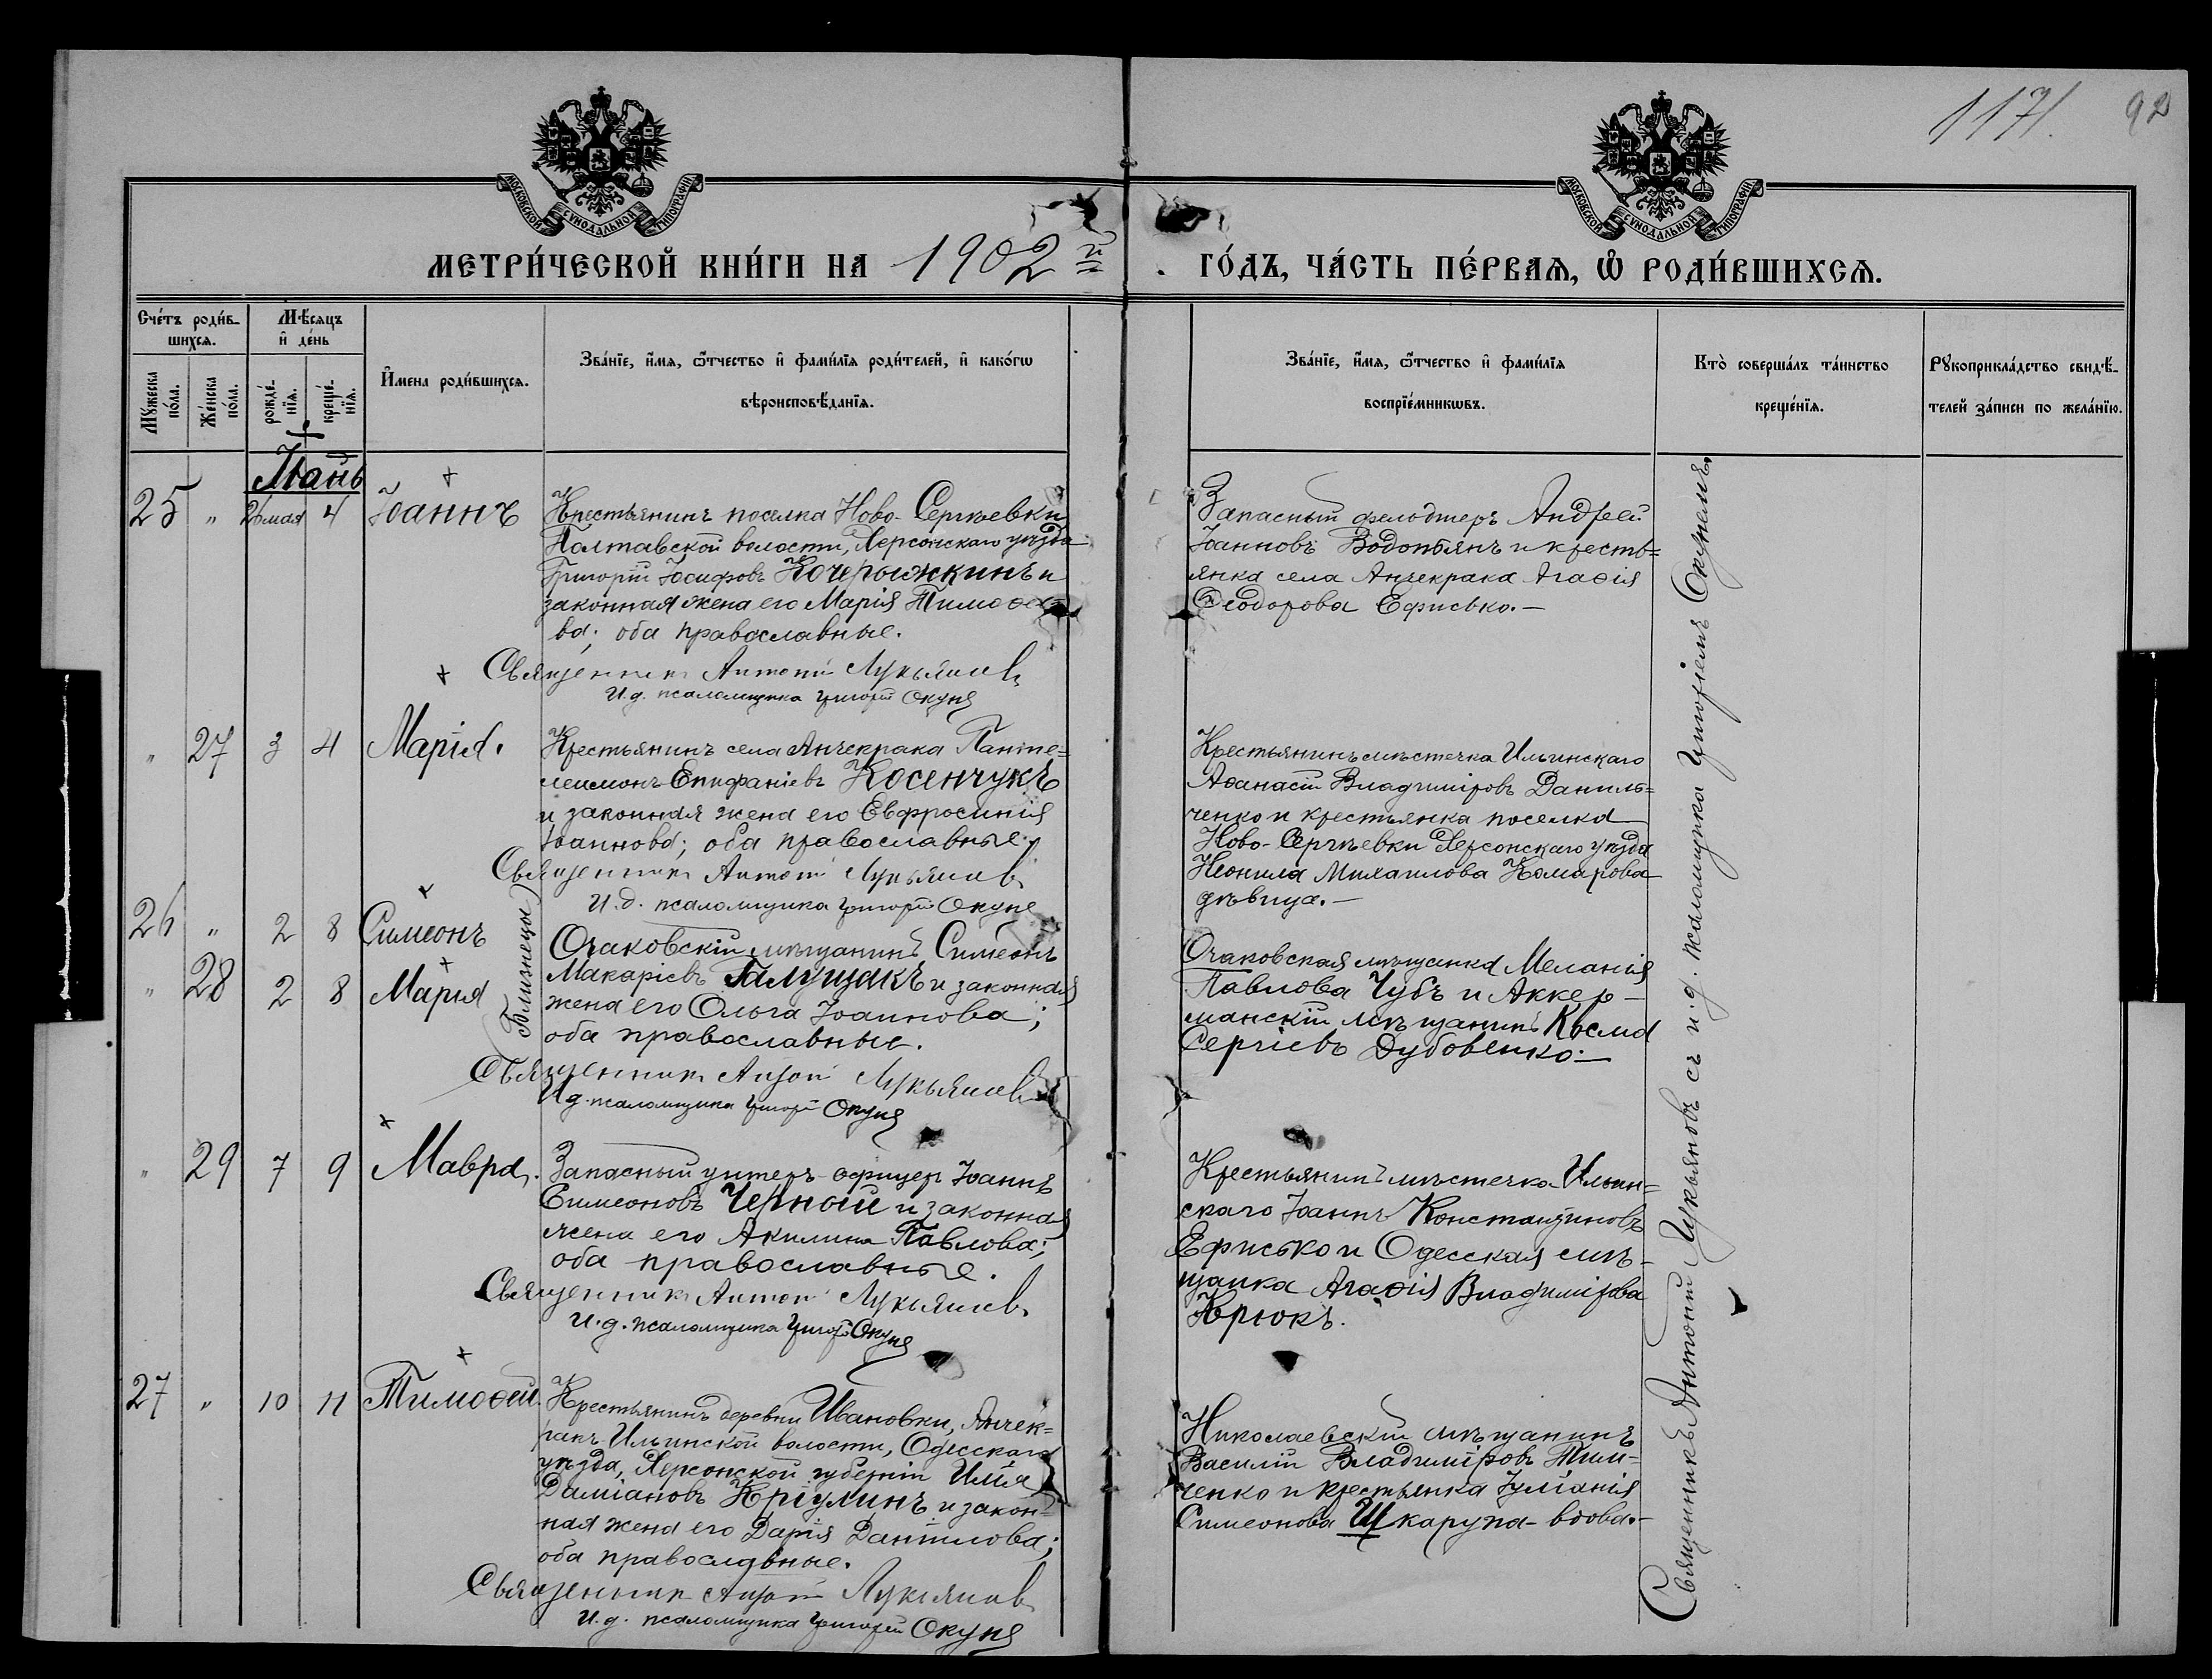 1171.
92
МОСКОВСКОЙ СѴНОДАЛЬНОЙ ТИПОГРАФІИ
МОСКОВСКОЙ СѴНОДАЛЬНОЙ ТИПОГРАФІИ
МЕТРИ́ЧЕСКОЙ КНИ́ГИ НА 1902й
ГО́ДЪ, ЧА́СТЬ ПЕ́РВАѦ, Ѽ РОДИ́ВШИХСѦ.
Сче́тъ роди́в-
шихсѧ.
Мꙋжеска по́ла.
Же́нска по́ла.
Мѣ́сѧцъ
и҆ де́нь
рожде́-
нїѧ.
креще́-
нїѧ.
И҆мена роди́вшихсѧ.
Зва́нїе, и҆́мѧ, ѻ҆́тчество и҆ фами́лїѧ роди́телей, и҆ како́гѡ
вѣроисповѣ́данїѧ.
Зва́нїе, и҆́мѧ, ѻ҆́тчество и҆ фами́лїѧ
воспрїе́мникѡвъ.
Кто̀ соверша́лъ та́инство
креще́нїѧ.
Рꙋкоприкла́дство свидѣ́-
телей за́писи по жела́нїю.
Іюнь
25 " 26 мая 4 Іоаннъ
Крестьянинъ поселка Ново-Сергѣевки
Полтавской волости, Херсонскаго уѣзда
Григорій Іосифовъ Кочерыжкинъ и
законная жена его Марія Тимоѳее-
ва; оба православные.
Священникъ Антоній Лукьяновъ
И.д. псаломщика Григорій Окуня
Запасный фельдшеръ Андрей
Іоанновъ Водопьянъ и кресть=
янка села Анчекрака Агаѳія
Ѳеодорова Ефисько.—
" 27 3 4 Марія.
Крестьянинъ села Анчекрака Панте=
леимонъ Епифаніевъ Косенчукъ
и законная жена его Евфросинія
Іоаннова; оба православные.
Священникъ Антоній Лукьяновъ
И.д. псаломщика Григорій Окуня
Крестьянинъ мѣстечка Ильинскаго
Аѳанасій Владиміровъ Даниль=
ченко и крестьянка поселка
Ново-Сергѣевки Херсонскаго уѣзда
Неонила Михаилова Комарова
дѣвица.—
26 " 2 8 Симеонъ
" 28 2 8 Марія
(Близнецы)
Очаковскій мѣщанинъ Симеонъ
Макаріевъ Галущакъ и законная
жена его Ольга Іоаннова;
оба православные.
Священникъ Антоній Лукьяновъ
И.д. псаломщика Григорій Окуня
Очаковская мѣщанка Меланія
Павлова Чубъ и Аккер-
манскій мѣщанинъ Косма
Сергіевъ Дубовенко.—
" 29 7 9 Мавра.
Запасный унтеръ-офицеръ Іоаннъ
Симеоновъ Черный и законная
жена его Акилина Павлова;
оба православные.
Священникъ Антоній Лукьяновъ
И.д. псаломщика Григорій Окуня
Крестьянинъ мѣстечка Ильин=
скаго Іоаннъ Константиновъ
Ефисько и Одесская мѣ-
щанка Агаѳія Владимірова
Крюкъ.
27 " 10 11 Тимоѳей.
Крестьянинъ деревни Ивановки, Анчек=
ракъ-Ильинской волости, Одесскаго
уѣзда, Херсонской губерніи Илія
Даміановъ Кріулинъ и закон-
ная жена его Дарія Даніилова;
оба православные.
Священникъ Антоній Лукьяновъ
И.д. псаломщика Григорій Окуня
Николаевскій мѣщанинъ
Василій Владиміровъ Тим-
ченко и крестьянка Іуліанія
Симеонова Шкарупа - вдова.—
Священникъ Антоній Лукьяновъ съ и.д. псаломщика Григоріемъ Окунемъ.